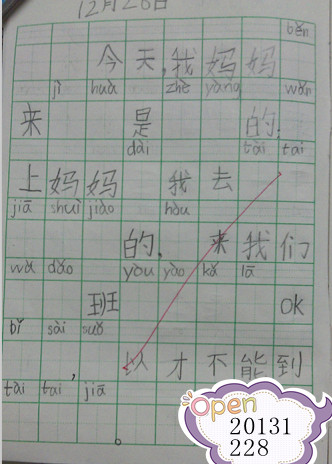 12月28日
今天,我妈妈 běn
jì huà zhè yàng wǎn
来 是 的,
dài tāi tai
上妈妈 我去
jiā shuì jiào hòu
的,来我们
wǒ dǎo yòu yào kǎ lā
班 ok
bǐ sài suǒ
以才不能到
tài tai, jiā
。
Open
20131
228